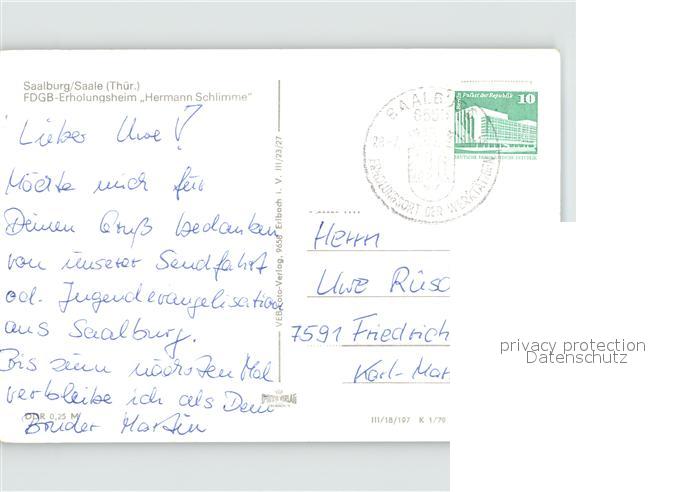 Saalburg/Saale (Thür.)
FDGB-Erholungsheim „Hermann Schlimme"
Lieber Uwe!
Möchte mich für
Deinen Gruß bedanken
von unserer Sendfahrt
od. Jugendevangelisation
aus Saalburg.
Bis zum nächsten Mal
verbleibe ich als Dein
Bruder Martin
DDR 0,25 M
VEB Foto-Verlag, 9659 Erlbach i. V. III/23/27
SAALBURG
ERHOLUNGSORT DER WERKTÄTIGEN
Palast der Republik
10
DEUTSCHE DEMOKRATISCHE REPUBLIK
Herrn
Uwe Rüsc
7591 Friedrich
Karl-Mar
III/18/197 K 1/79
privacy protection
Datenschutz